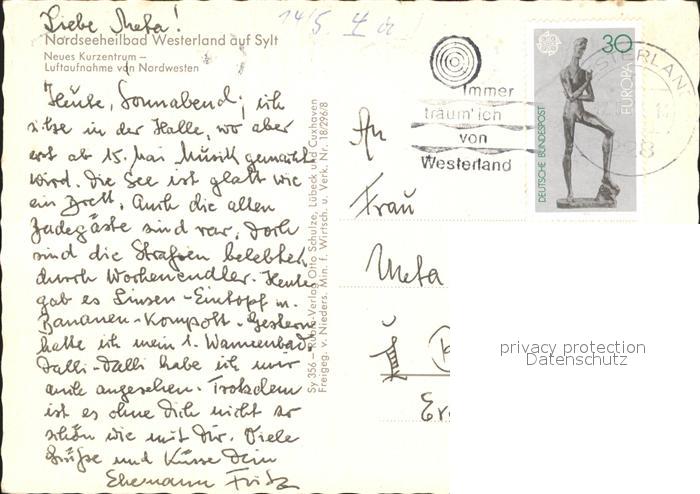 Liebe Meta!
14/5. 74
Nordseeheilbad Westerland auf Sylt
Neues Kurzentrum –
Luftaufnahme von Nordwesten
Heute, Sonnabend, ich
sitze in der Halle, wo aber
erst ab 15. Mai Musik gemacht
wird. Die See ist glatt wie
ein Brett. Auch die alten
Badegäste sind rar. Doch
sind die Straßen belebter
durch Wochenendler. Heute
gab es Linsen-Eintopf m.
Bananen-Kompott. Gestern
hatte ich mein 1. Wannenbad.
Dalli-Dalli habe ich mir
auch angesehen. Trotzdem
ist es ohne Dich nicht so
schön wie mit Dir. Viele
Grüße und Küsse Dein
Ehemann Fritz
Sy 356 – Rubra-Verlag Otto Schulze, Lübeck und Cuxhaven
Freigeg. v. Nieders. Min. f. Wirtsch. u. Verk. Nr. 18/296/8
Immer
träum' ich
von
Westerland
30
EUROPA
DEUTSCHE BUNDESPOST
WESTERLAND
An
Frau
Meta
privacy protection
Datenschutz